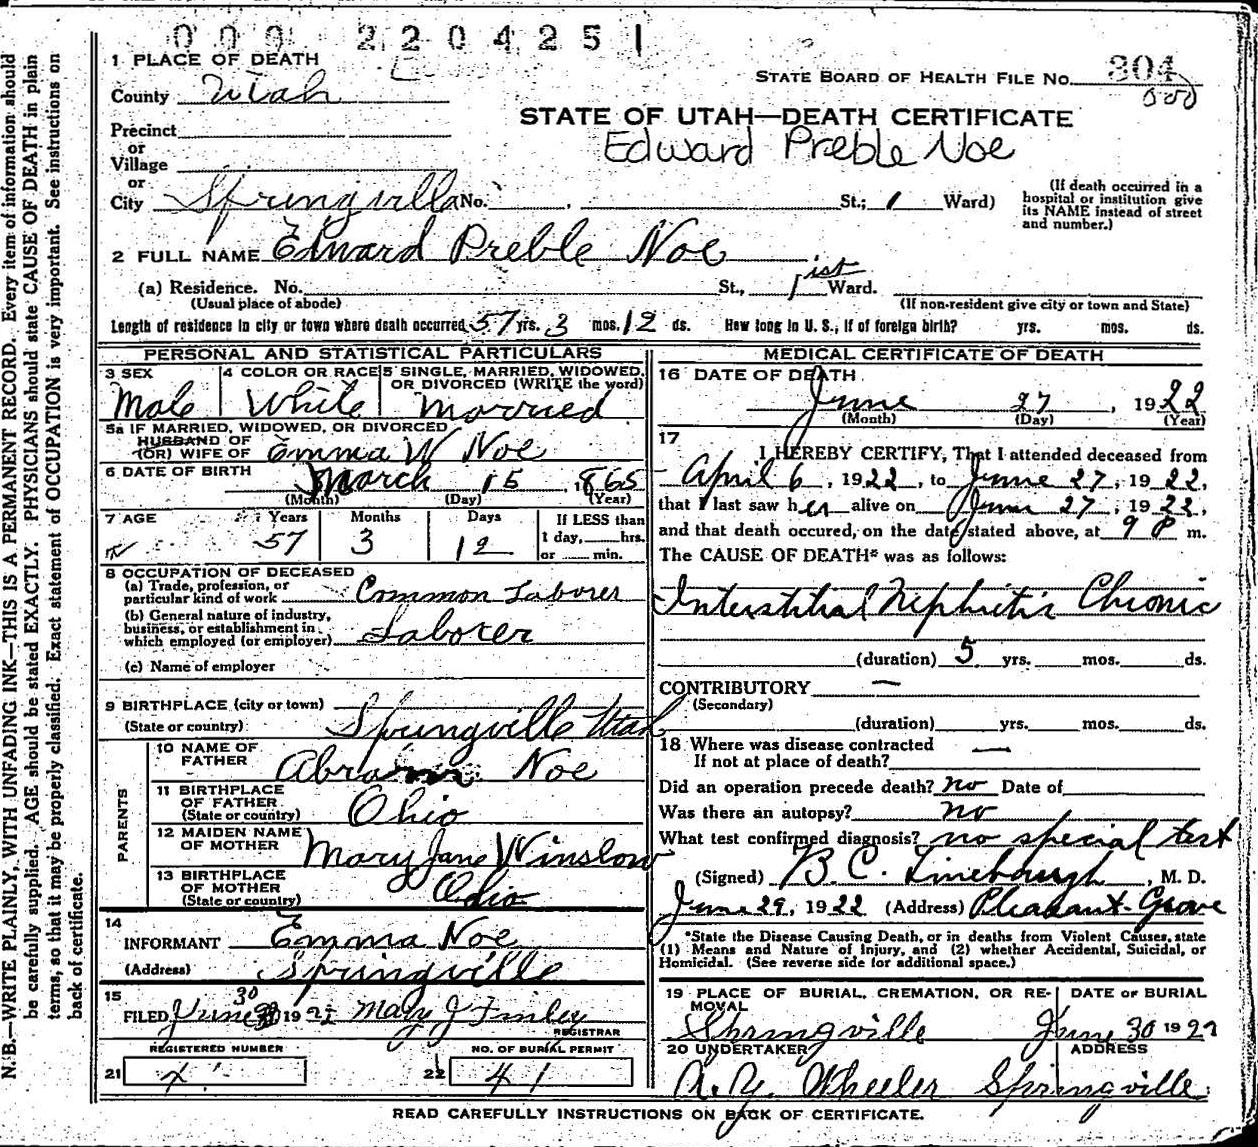 000 220425 1
1 PLACE OF DEATH
STATE BOARD OF HEALTH FILE No. 304
County Utah
STATE OF UTAH—DEATH CERTIFICATE
Edward Preble Noe
Precinct
or
Village
or
City Springville No. St.; 1 Ward)
(If death occurred in a hospital or institution give its NAME instead of street and number.)
2 FULL NAME Edward Preble Noe
(a) Residence. No. St., 1st Ward.
(Usual place of abode) (If non-resident give city or town and State)
Length of residence in city or town where death occurred 57 yrs. 3 mos. 12 ds. How long in U. S., if of foreign birth? yrs. mos. ds.
PERSONAL AND STATISTICAL PARTICULARS
3 SEX Male
4 COLOR OR RACE White
5 SINGLE, MARRIED, WIDOWED, OR DIVORCED (WRITE the word) Married
5a IF MARRIED, WIDOWED, OR DIVORCED
HUSBAND OF
(OR) WIFE OF Emma W Noe
6 DATE OF BIRTH March 15, 1865
(Month) (Day) (Year)
7 AGE Years 57 Months 3 Days 12
If LESS than 1 day, hrs. or min.
8 OCCUPATION OF DECEASED
(a) Trade, profession, or particular kind of work Common Laborer
(b) General nature of industry, business, or establishment in which employed (or employer) Laborer
(c) Name of employer
9 BIRTHPLACE (city or town)
(State or country) Springville Utah
PARENTS
10 NAME OF FATHER Abram Noe
11 BIRTHPLACE OF FATHER (State or country) Ohio
12 MAIDEN NAME OF MOTHER Mary Jane Winslow
13 BIRTHPLACE OF MOTHER (State or country) Ohio
14
INFORMANT Emma Noe
(Address) Springville
15
FILED June 30 1922 Mary J Finley
REGISTRAR
REGISTERED NUMBER NO. OF BURIAL PERMIT
21 22 41
MEDICAL CERTIFICATE OF DEATH
16 DATE OF DEATH
June 27, 1922
(Month) (Day) (Year)
17
I HEREBY CERTIFY, That I attended deceased from
April 6, 1922, to June 27, 1922,
that I last saw her alive on June 27, 1922,
and that death occured, on the date stated above, at 9 P m.
The CAUSE OF DEATH* was as follows:
Interstitial Nephritis Chronic
(duration) 5 yrs. mos. ds.
CONTRIBUTORY —
(Secondary)
(duration) yrs. mos. ds.
18 Where was disease contracted
If not at place of death? —
Did an operation precede death? no Date of
Was there an autopsy? no
What test confirmed diagnosis? no special test
(Signed) B. C. Linebaugh, M. D.
June 29, 1922 (Address) Pleasant Grove
*State the Disease Causing Death, or in deaths from Violent Causes, state
(1) Means and Nature of Injury, and (2) whether Accidental, Suicidal, or
Homicidal. (See reverse side for additional space.)
19 PLACE OF BURIAL, CREMATION, OR REMOVAL DATE OF BURIAL
Springville June 30 1922
20 UNDERTAKER ADDRESS
A. Y. Wheeler Springville
READ CAREFULLY INSTRUCTIONS ON BACK OF CERTIFICATE.
N. B.—WRITE PLAINLY, WITH UNFADING INK—THIS IS A PERMANENT RECORD. Every item of information should
be carefully supplied. AGE should be stated EXACTLY. PHYSICIANS should state CAUSE OF DEATH in plain
terms, so that it may be properly classified. Exact statement of OCCUPATION is very important. See instructions on
back of certificate.